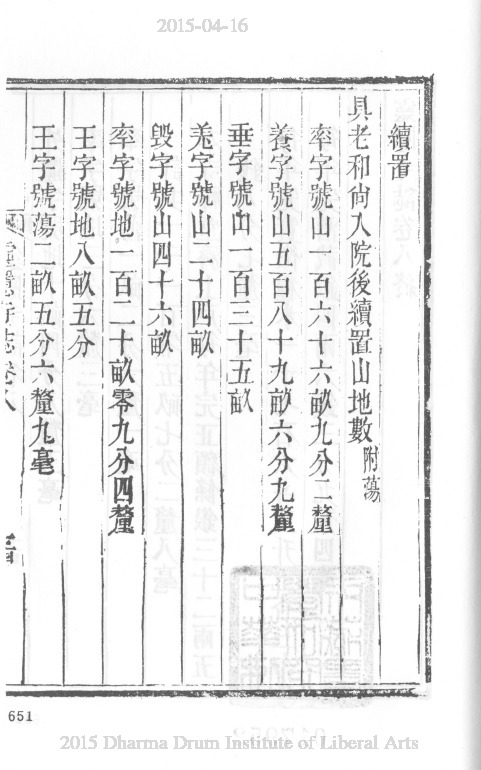 2015-04-16
續置
具老和尚入院後續置山地數附蕩
率字號山一百六十六畝九分二釐
養字號山五百八十九畝六分九釐
垂字號山一百三十五畝
羌字號山二十四畝
毀字號山四十六畝
率字號地一百二十畝零九分四釐
王字號地八畝五分
王字號蕩二畝五分六釐九毫
寺志卷八
651
2015 Dharma Drum Institute of Liberal Arts